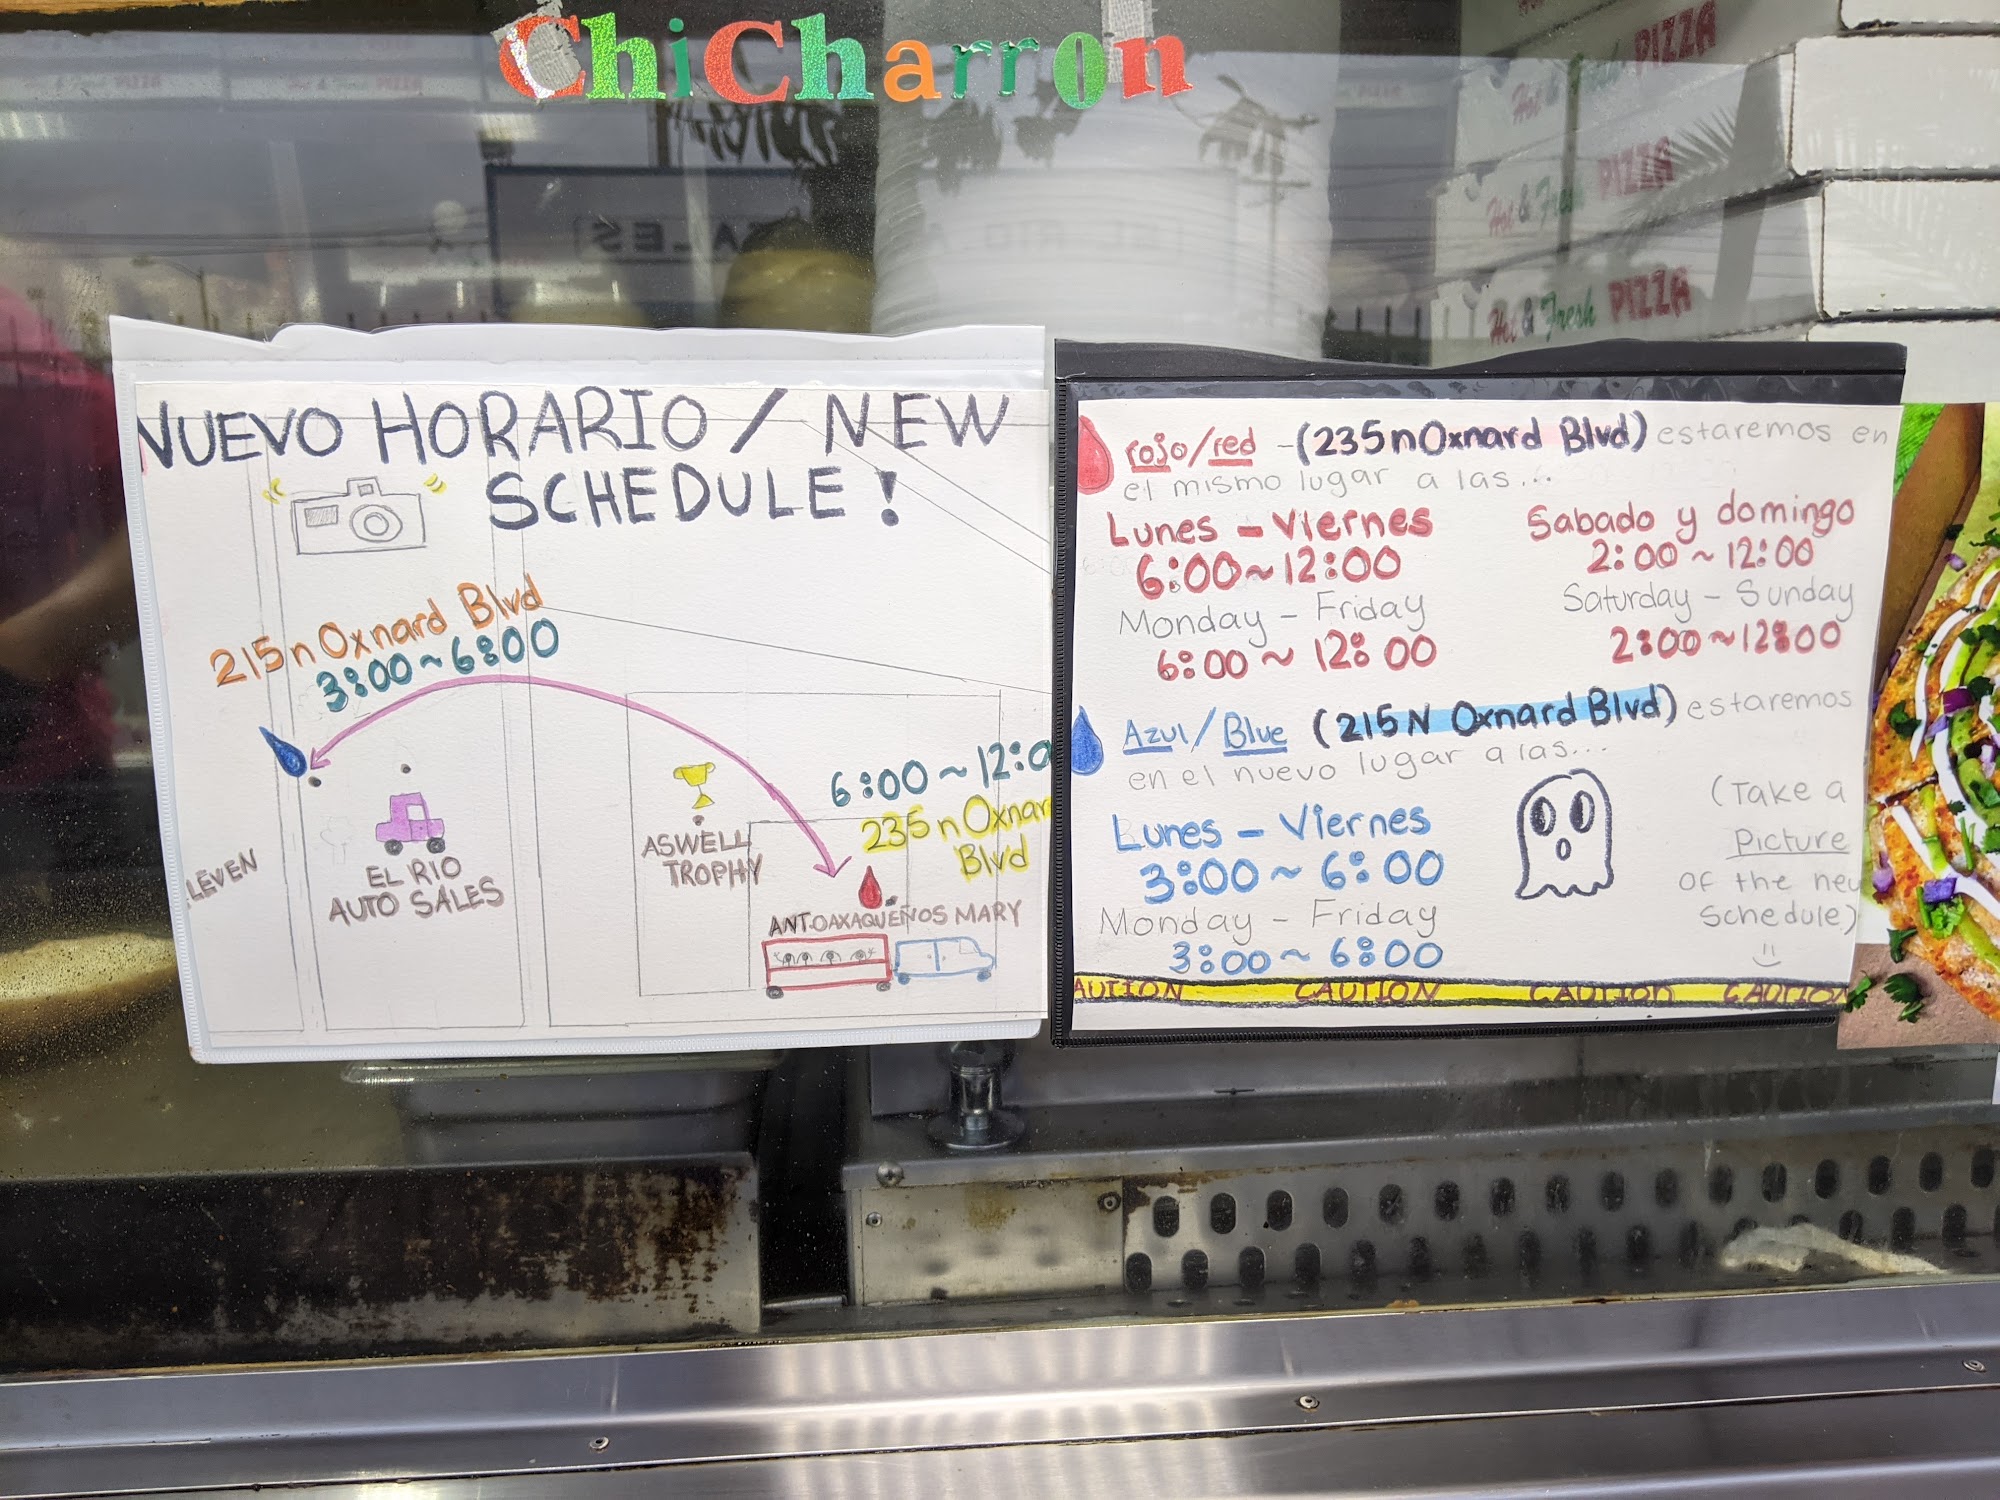 ChiCharron
Hot & Fresh PIZZA
Hot & Fresh PIZZA
Hot & Fresh PIZZA
NUEVO HORARIO / NEW
SCHEDULE!
215 n Oxnard Blvd
3:00 ~ 6:00
6:00 ~ 12:0
235 n Oxnar
Blvd
LEVEN
EL RIO
AUTO SALES
ASWELL
TROPHY
ANT.OAXAQUEÑOS MARY
rojo/red - (235 n Oxnard Blvd) estaremos en
el mismo lugar a las...
Lunes - Viernes
6:00 ~ 12:00
Monday - Friday
6:00 ~ 12:00
Sabado y domingo
2:00 ~ 12:00
Saturday - Sunday
2:00 ~ 12:00
Azul/Blue (215 N Oxnard Blvd) estaremos
en el nuevo lugar a las...
Lunes - Viernes
3:00 ~ 6:00
Monday - Friday
3:00 ~ 6:00
(Take a
Picture
of the new
schedule)
AUTION CAUTION CAUTION CAUTION